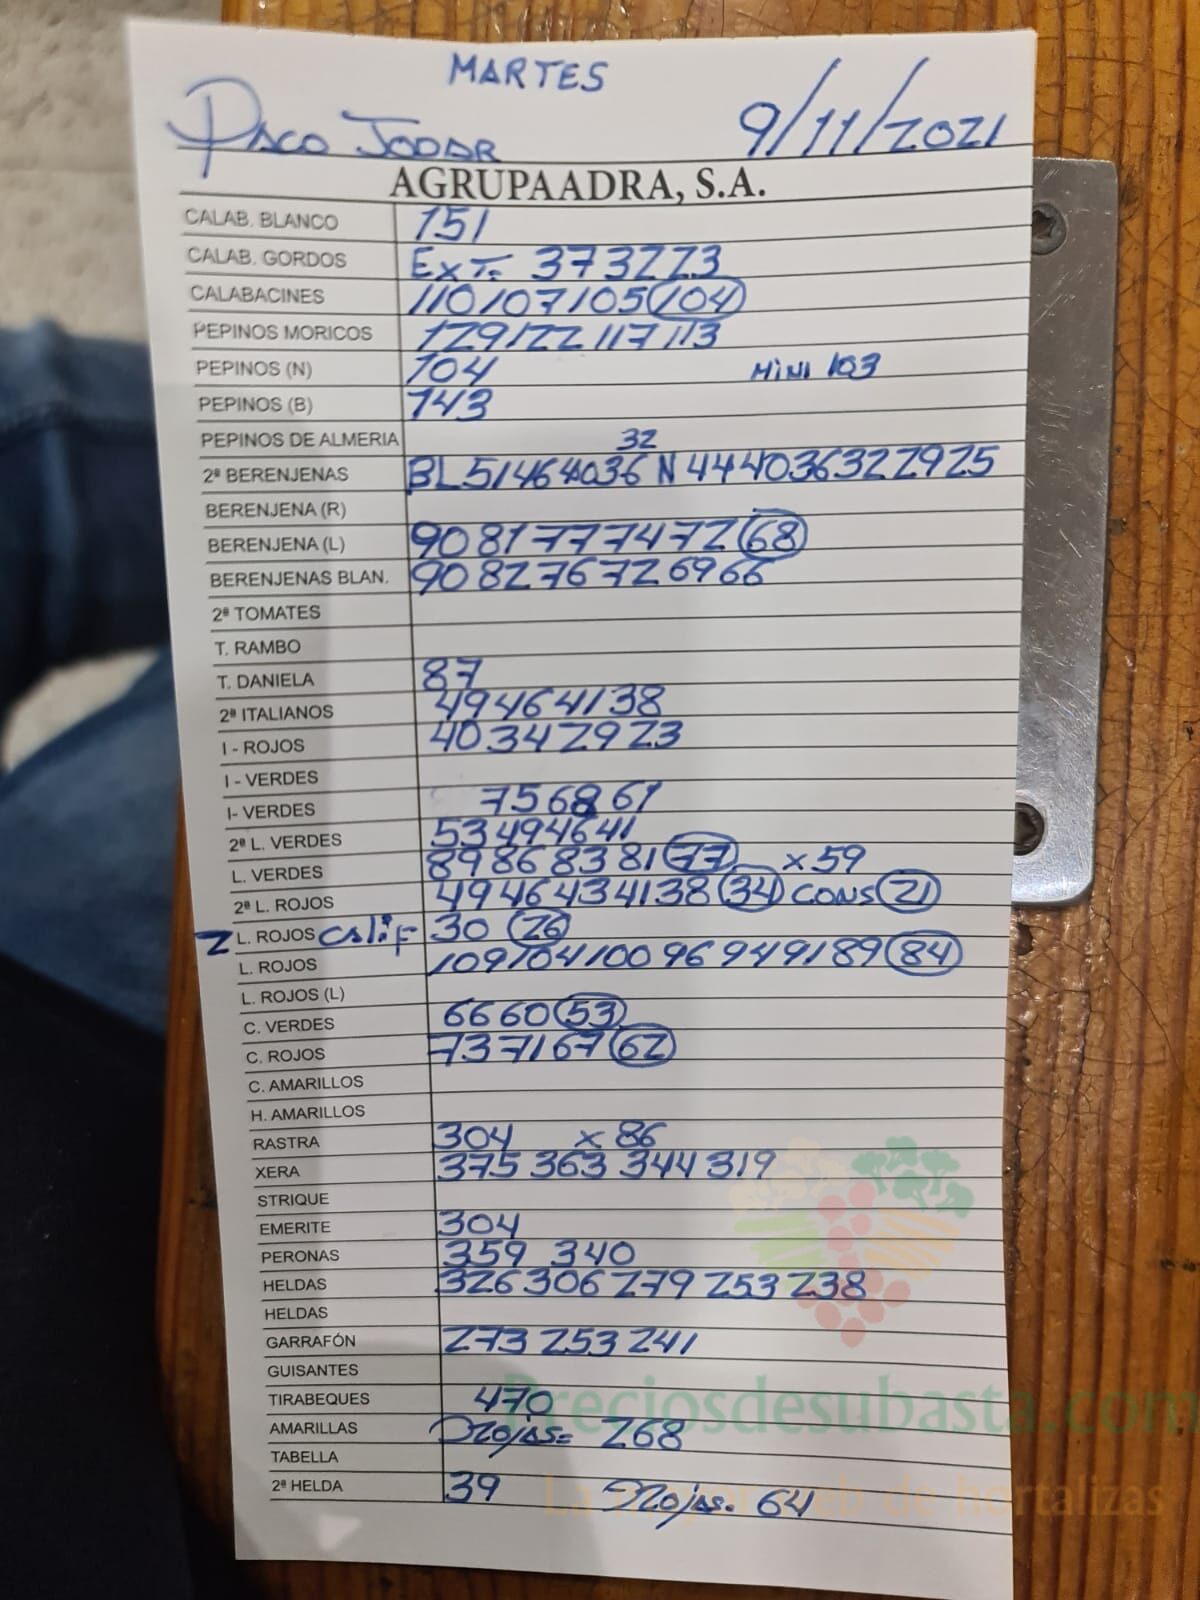 MARTES
Paco Jodar 9/11/2021
AGRUPAADRA, S.A.
CALAB. BLANCO 151
CALAB. GORDOS Ext. 37 32 23
CALABACINES 110 107 105 104
PEPINOS MORICOS 129 122 117 113
PEPINOS (N) 104 Mini 103
PEPINOS (B) 143
PEPINOS DE ALMERIA 32
2ª BERENJENAS BL 51 46 40 36 N 44 40 36 32 29 25
BERENJENA (R)
BERENJENA (L) 90 81 77 74 72 68
BERENJENAS BLAN. 90 82 76 72 69 66
2ª TOMATES
T. RAMBO
T. DANIELA 87
2ª ITALIANOS 49 46 41 38
I - ROJOS 40 34 29 23
I - VERDES
I- VERDES 75 68 61
2ª L. VERDES 53 49 46 41
L. VERDES 89 86 83 81 77 x 59
2ª L. ROJOS 49 46 43 41 38 34 CONS 21
2 L. ROJOS Calif 30 26
L. ROJOS 109 104 100 96 94 91 89 84
L. ROJOS (L)
C. VERDES 66 60 53
C. ROJOS 73 71 67 62
C. AMARILLOS
H. AMARILLOS
RASTRA 304 x 86
XERA 375 363 344 319
STRIQUE
EMERITE 304
PERONAS 359 340
HELDAS 326 306 279 253 238
HELDAS
GARRAFÓN 273 253 241
GUISANTES
TIRABEQUES 470
AMARILLAS Rojas= 268
TABELLA
2ª HELDA 39 Rojas. 64
Preciosdesubasta.com
La mejor web de hortalizas